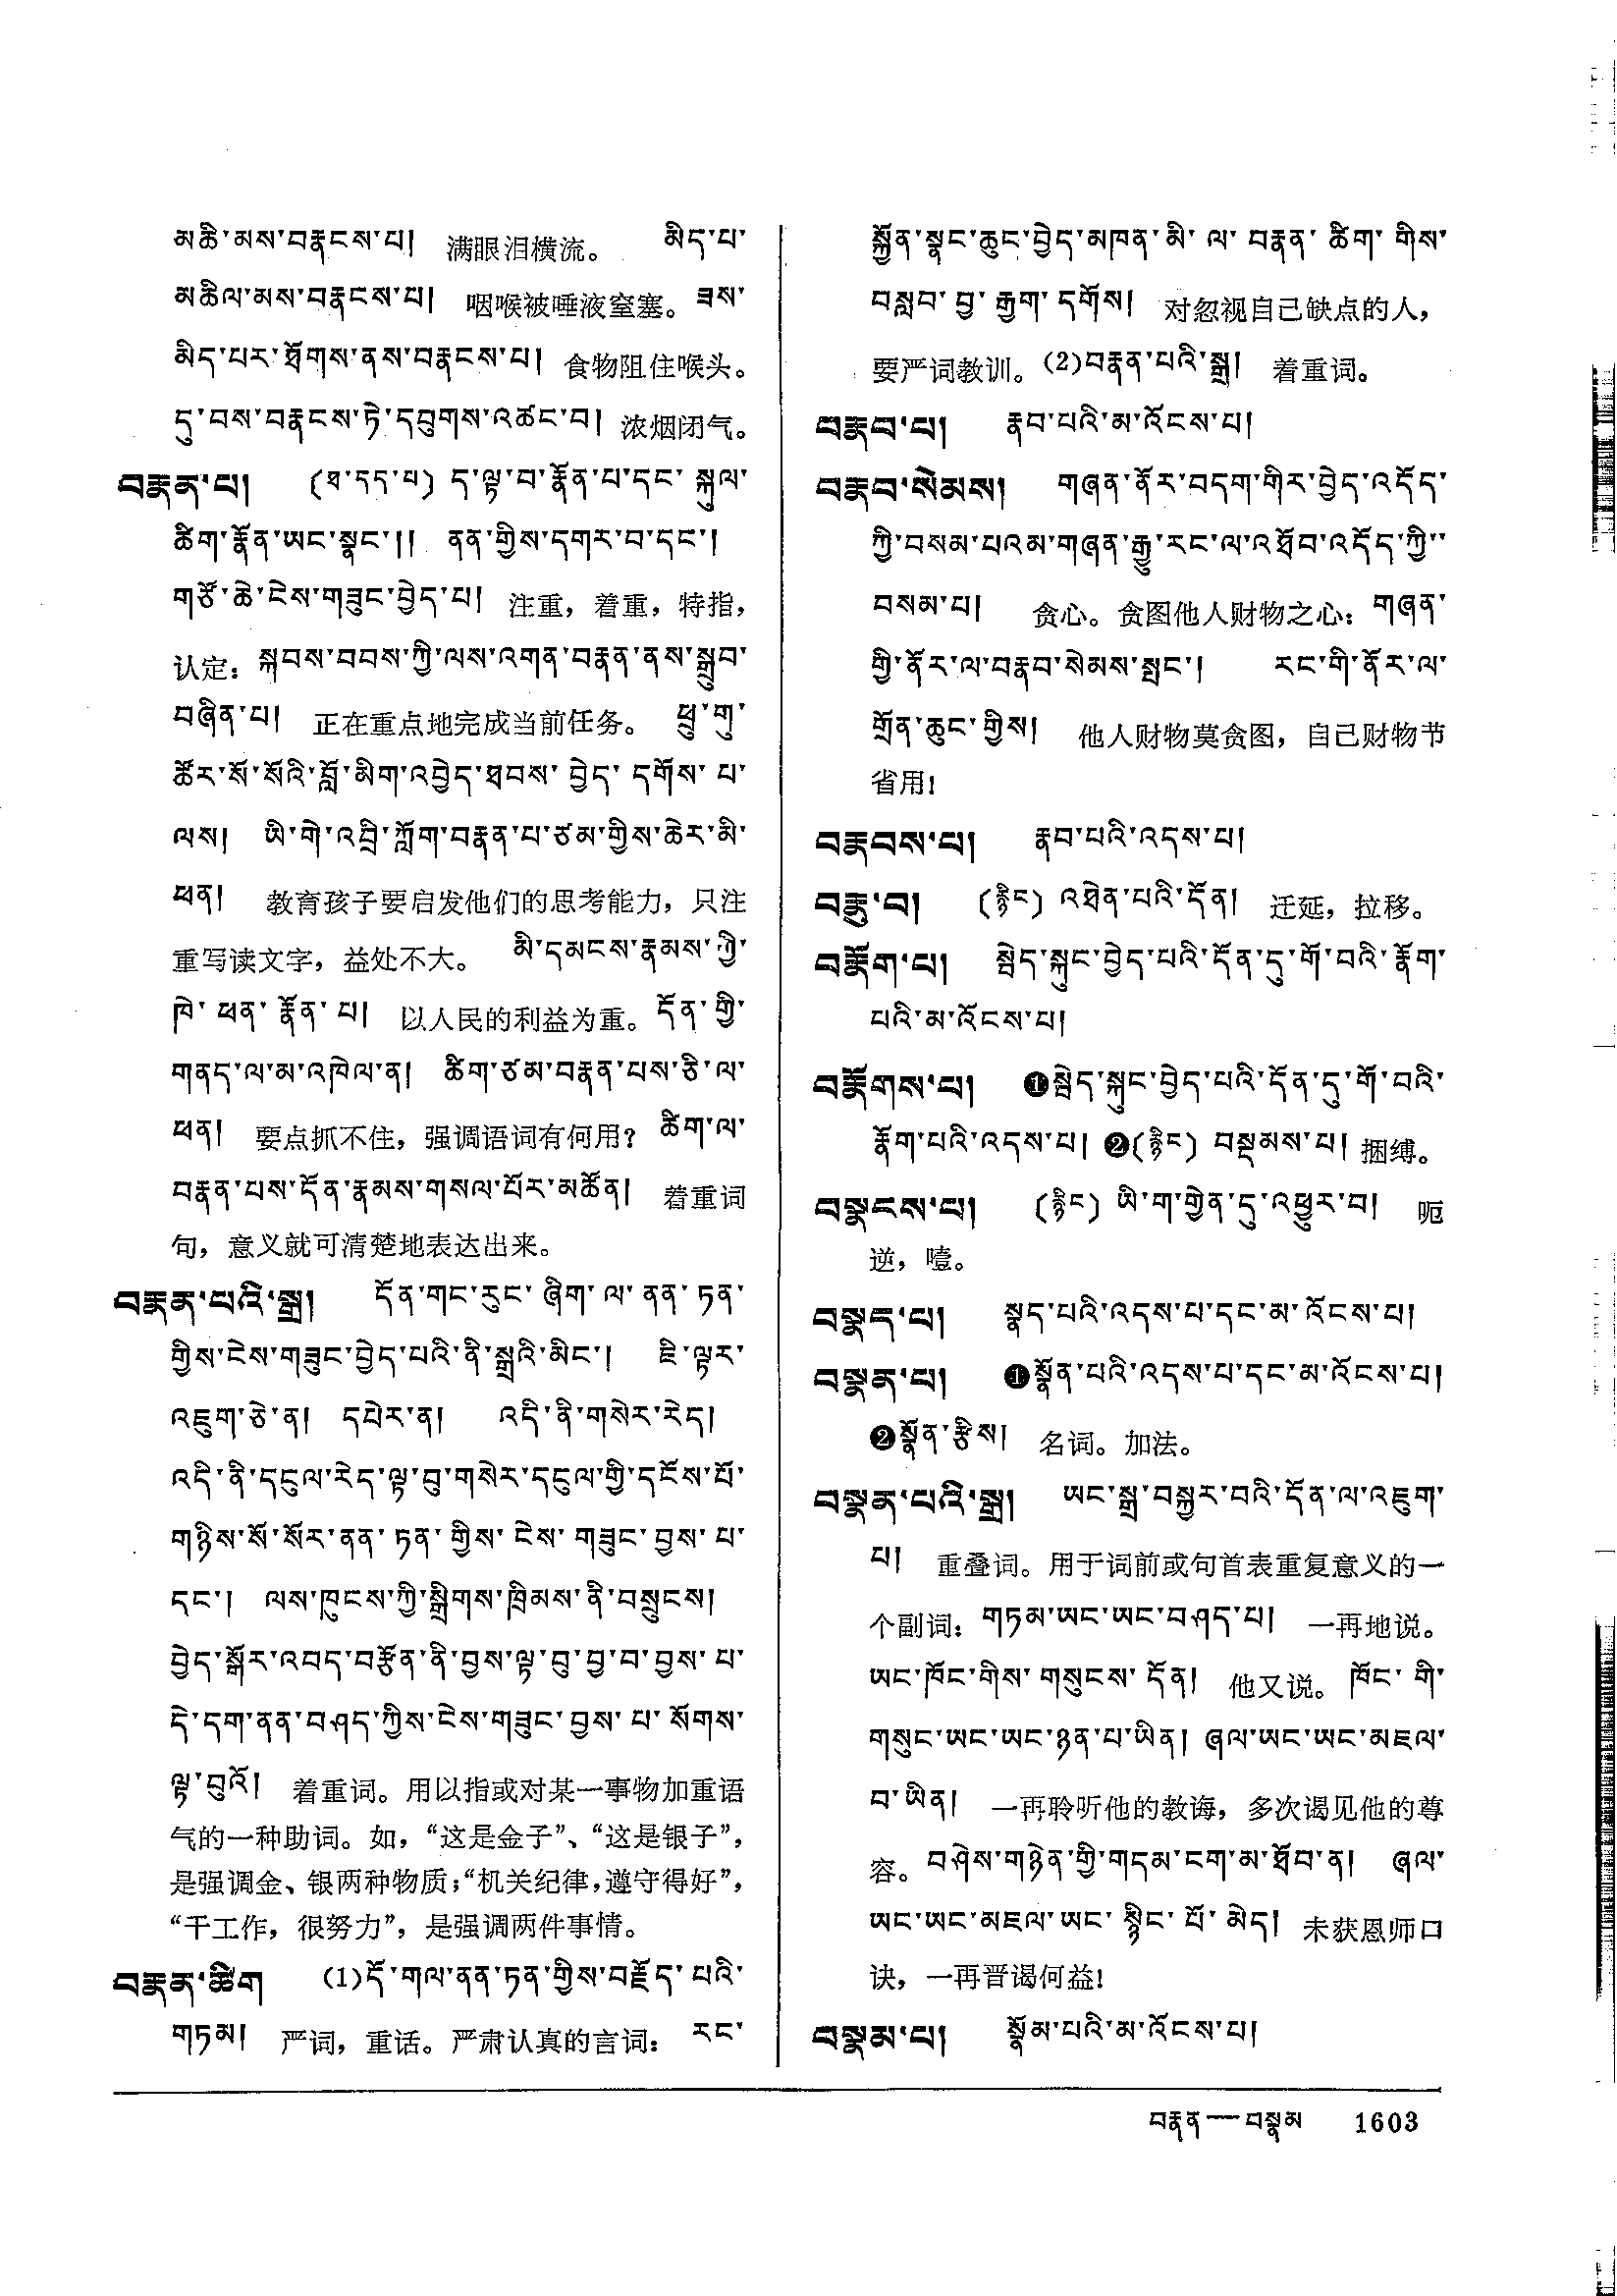 མཆི་མས་བརྣངས་པ། 满眼泪横流。 མིད་པ་
མཆིལ་མས་བརྣངས་པ། 咽喉被唾液窒塞。ཟས་
མིད་པར་ཐོགས་ནས་བརྣངས་པ། 食物阻住喉头。
དུ་བས་བརྣངས་ཏེ་དབུགས་འཚང་བ། 浓烟闭气。
བརྣན་པ། (ཐ་དད་པ) ད་ལྟ་བ་རྣོན་པ་དང་ སྐུལ་
ཚིག་རྣོན་ཡང་སྣང་།། ནན་གྱིས་དགར་བ་དང་།
གཙོ་ཆེ་ངེས་གཟུང་བྱེད་པ། 注重，着重，特指，
认定：སྐབས་བབས་ཀྱི་ལས་འགན་བརྣན་ནས་སྒྲུབ་
བཞིན་པ། 正在重点地完成当前任务。 ཕྲུ་གུ་
ཚོར་སོ་སོའི་བློ་མིག་འབྱེད་ཐབས་ བྱེད་ དགོས་ པ་
ལས། ཡི་གེ་འབྲི་ཀློག་བརྣན་པ་ཙམ་གྱིས་ཆེར་མི་
ཕན། 教育孩子要启发他们的思考能力，只注
重写读文字，益处不大。 མི་དམངས་རྣམས་ཀྱི་
ཁེ་ ཕན་ རྣོན་ པ། 以人民的利益为重。དོན་ གྱི་
གནད་ལ་མ་འཁེལ་ན། ཚིག་ཙམ་བརྣན་པས་ཅི་ལ་
ཕན། 要点抓不住，强调语词有何用？ཚིག་ལ་
བརྣན་པས་དོན་རྣམས་གསལ་པོར་མཚོན། 着重词
句，意义就可清楚地表达出来。
བརྣན་པའི་སྒྲ། དོན་གང་རུང་ ཞིག་ ལ་ ནན་ ཏན་
གྱིས་ངེས་གཟུང་བྱེད་པའི་ནི་སྒྲའི་མིང་། ཇི་ལྟར་
འཇུག་ཅེ་ན། དཔེར་ན། འདི་ནི་གསེར་རེད།
འདི་ནི་དངུལ་རེད་ལྟ་བུ་གསེར་དངུལ་གྱི་དངོས་པོ་
གཉིས་སོ་སོར་ནན་ ཏན་ གྱིས་ ངེས་ གཟུང་ བྱས་ པ་
དང་། ལས་ཁུངས་ཀྱི་སྒྲིགས་ཁྲིམས་ནི་བསྲུངས།
བྱེད་སྒོར་འབད་བརྩོན་ནི་བྱས་ལྟ་བུ་བྱ་བ་བྱས་ པ་
དེ་དག་ནན་བཤད་ཀྱིས་ངེས་གཟུང་བྱས་ པ་ སོགས་
ལྟ་བུའོ། 着重词。用以指或对某一事物加重语
气的一种助词。如，“这是金子”、“这是银子”，
是强调金、银两种物质；“机关纪律，遵守得好”，
“干工作，很努力”，是强调两件事情。
བརྣན་ཚིག (1)དོ་གལ་ནན་ཏན་གྱིས་བརྗོད་ པའི་
གཏམ། 严词，重话。严肃认真的言词： རང་
སྐྱོན་སྣང་ཆུང་བྱེད་མཁན་ མི་ ལ་ བརྣན་ ཚིག་ གིས་
བསླབ་ བྱ་ རྒྱག་ དགོས། 对忽视自己缺点的人，
要严词教训。(2)བརྣན་པའི་སྒྲ། 着重词。
བརྣབ་པ། རྣབ་པའི་མ་འོངས་པ།
བརྣབ་སེམས། གཞན་ནོར་བདག་གིར་བྱེད་འདོད་
ཀྱི་བསམ་པའམ་གཞན་རྒྱུ་རང་ལ་འཐོབ་འདོད་ཀྱི་
བསམ་པ། 贪心。贪图他人财物之心：གཞན་
གྱི་ནོར་ལ་བརྣབ་སེམས་སྤང་། རང་གི་ནོར་ལ་
གྲོན་ཆུང་གྱིས། 他人财物莫贪图，自己财物节
省用！
བརྣབས་པ། རྣབ་པའི་འདས་པ།
བརྣུ་བ། (རྙིང) འཐེན་པའི་དོན། 迁延，拉移。
བརྣོག་པ། སྦེད་སྐུང་བྱེད་པའི་དོན་དུ་གོ་བའི་རྣོག་
པའི་མ་འོངས་པ།
བརྣོགས་པ། ❶སྦེད་སྐུང་བྱེད་པའི་དོན་དུ་གོ་བའི་
རྣོག་པའི་འདས་པ། ❷(རྙིང) བསྡམས་པ། 捆缚。
བསྣངས་པ། (རྙིང) ཡི་ག་གྱེན་དུ་འཕྱུར་བ། 呃
逆，噎。
བསྣད་པ། སྣད་པའི་འདས་པ་དང་མ་འོངས་པ།
བསྣན་པ། ❶སྣོན་པའི་འདས་པ་དང་མ་འོངས་པ།
❷སྣོན་རྩིས། 名词。加法。
བསྣན་པའི་སྒྲ། ཡང་སྒྲ་བསྐྱར་བའི་དོན་ལ་འཇུག་
པ། 重叠词。用于词前或句首表重复意义的一
个副词：གཏམ་ཡང་ཡང་བཤད་པ། 一再地说。
ཡང་ཁོང་གིས་ གསུངས་ དོན། 他又说。ཁོང་ གི་
གསུང་ཡང་ཡང་ཉན་པ་ཡིན། ཞལ་ཡང་ཡང་མཇལ་
བ་ཡིན། 一再聆听他的教诲，多次谒见他的尊
容。བཤེས་གཉེན་གྱི་གདམ་ངག་མ་ཐོབ་ན། ཞལ་
ཡང་ཡང་མཇལ་ཡང་ སྙིང་ པོ་ མེད། 未获恩师口
诀，一再晋谒何益！
བསྣམ་པ། སྣོམ་པའི་མ་འོངས་པ།
བརྣན — བསྣམ 1603